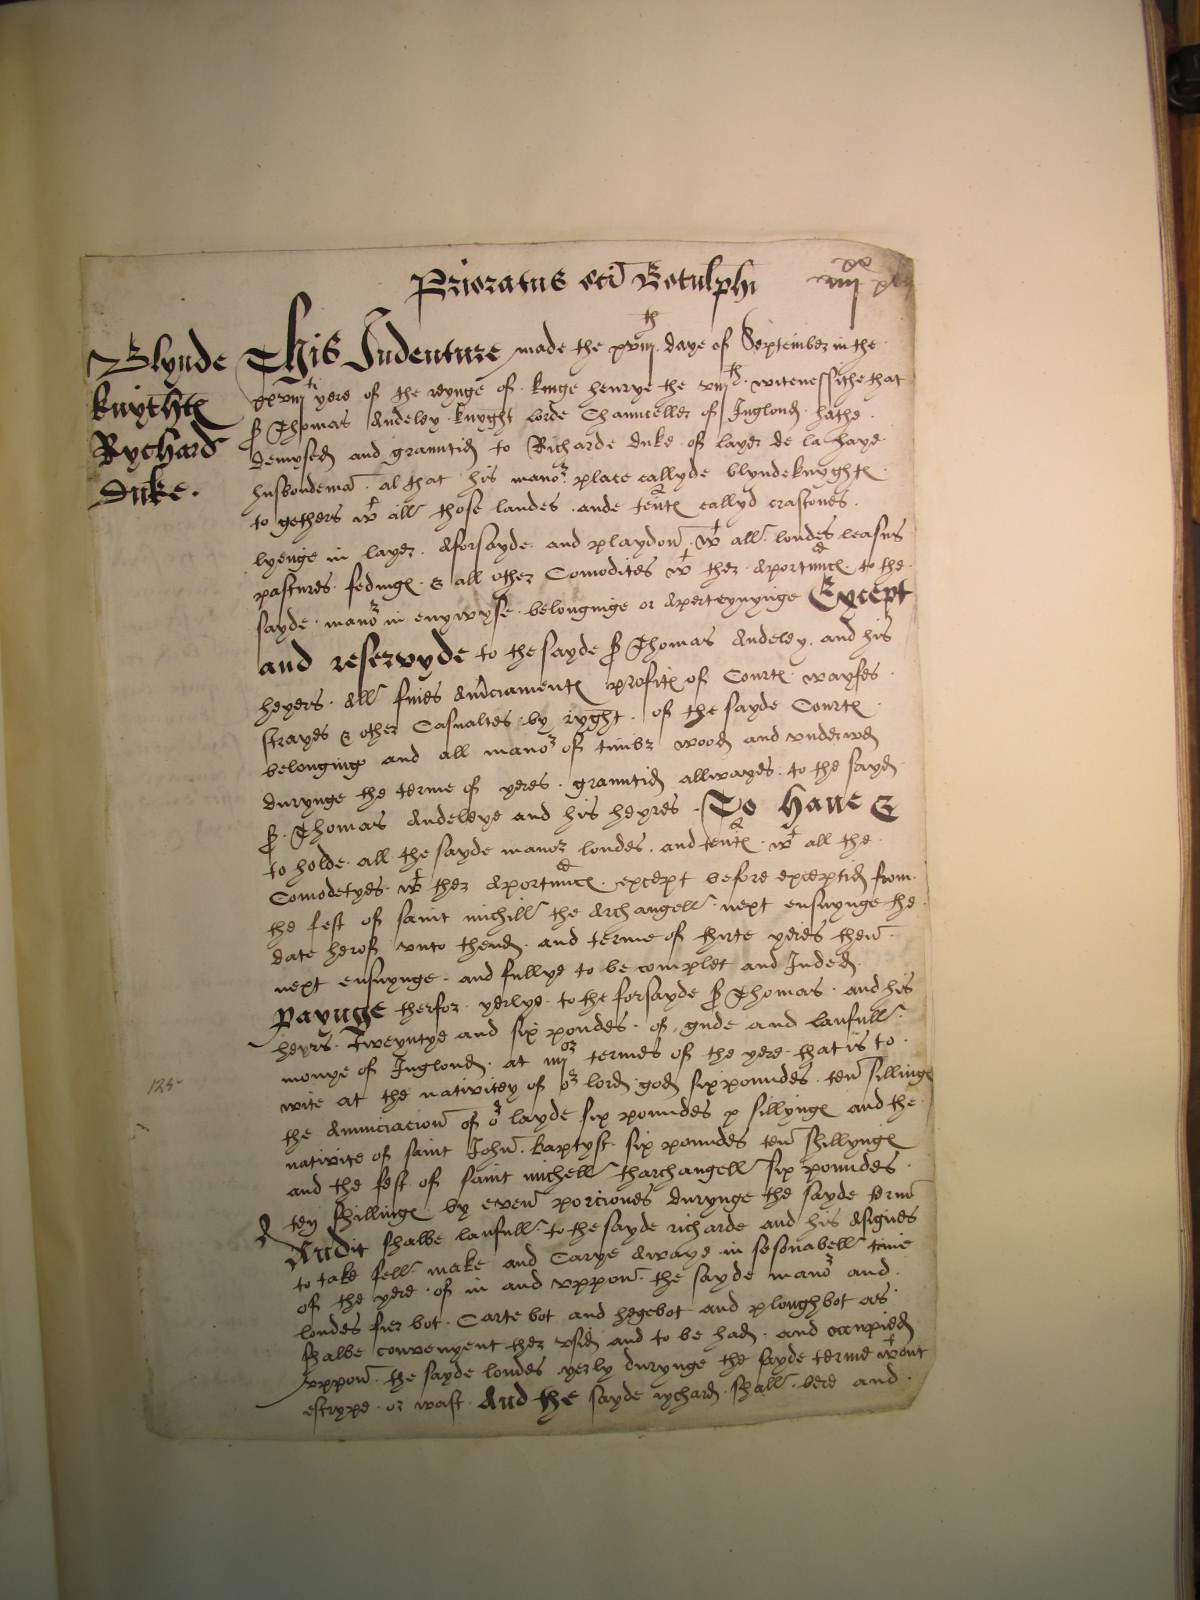 Prioratus sci Botulphi
Blynde
knyghtes
Rychard
Duke.
This Indenture made the xviij th daye of September in the
xxviij ti yere of the reynge of kinge henrye the viij th witenessithe that
Sr Thomas Audeley knyght lorde Chauncellor of Inglond hathe
demysed and grauntid to Richarde duke of layer de la haye
husbondema al that his manor place callyde blyndeknyghtes
to gethers wt all those landes ande tentes callyd crastones
lyenge in layer aforsayde and playdon wt all londes leasus
pastures fedinges & all other Comodites wt ther aportunces to the
sayde manor in enywyse belonginge or aperteynynge Except
and reservyde to the sayde Sr Thomas Audeley and his
heyers all fines amerciamentes profites of Courtes wayfes
strayes & other Casualtes by ryght of the sayde Courtes
belonging and all manor of timber wood and underwod
durynge the terme of yeres grauntid allwayes to the sayd
Sr Thomas Audeleye and his heyres To Haue &
to holde all the sayde manor londes and tentes wt all the
Comodetyes wt ther aportunces except before exceptid from
the fest of saint michill the Archangell next ensuynge the
date herof unto thend and terme of thirte yeres then
next ensuynge and fullye to be complet and Inded
Paynge therfor yerlye to the forsayde Sr Thomas and his
heyrs tweyntye and six poundes of gude and laufull
monye of Inglond at iiij or termes of the yere that is to
wite at the nativitey of or lord god six poundes ten sillinges
the Annuciacion of or layde six poundes x sillynges and the
nativite of saint John baptyst six poundes ten shillynges
and the fest of saint michell tharchangell six poundes
ten shillinges by even porciones durynge the sayde term
125
And it shalbe laufull to the sayde richarde and his Asignes
to take fell make and Carye awaye in sesonabell time
of the yere of in and uppon the sayde manor and
londes fier bot Carte bot and hegebot and ploughbot as
shalbe convenyent ther usid and to be had and occupied
uppon the sayde londes yerly durynge the sayde terme wtout
estrype or wast And the sayde rychard shall bere and